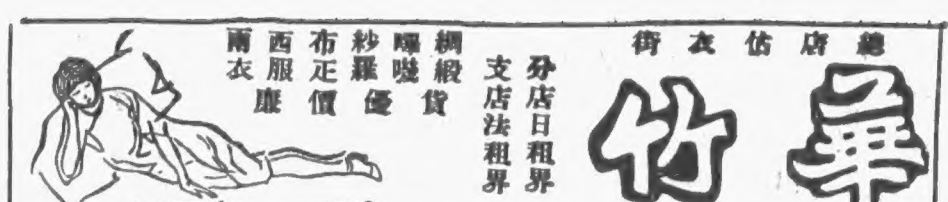 總店估衣街
華竹
分店日租界
支店法租界
綢緞
嗶嘰
紗羅
布疋
西服
雨衣
貨優價廉